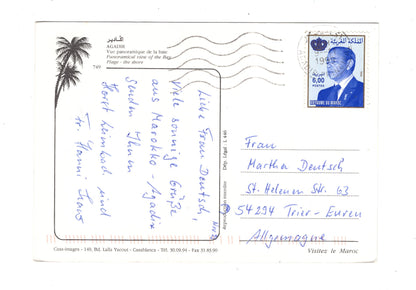 أڭادير
AGADIR
Vue panoramique de la baie
Panoramical view of the Bay
Plage - the shore
749
Liebe Frau Deutsch,
Viele sonnige Grüße
aus Marokko - Agadir
senden Ihnen
Horst und
Fr. Hanni
Cass-images - 149, Bd. Lalla Yacout - Casablanca - Tél. 30.09.94 - Fax 31.85.90
Dép. Légal
المملكة المغربية
6,00
POSTES
ROYAUME DU MAROC
Frau
Martha Deutsch
St. Helenen Str. 63
54294 Trier-Euren
Allgemagne
Visitez le Maroc